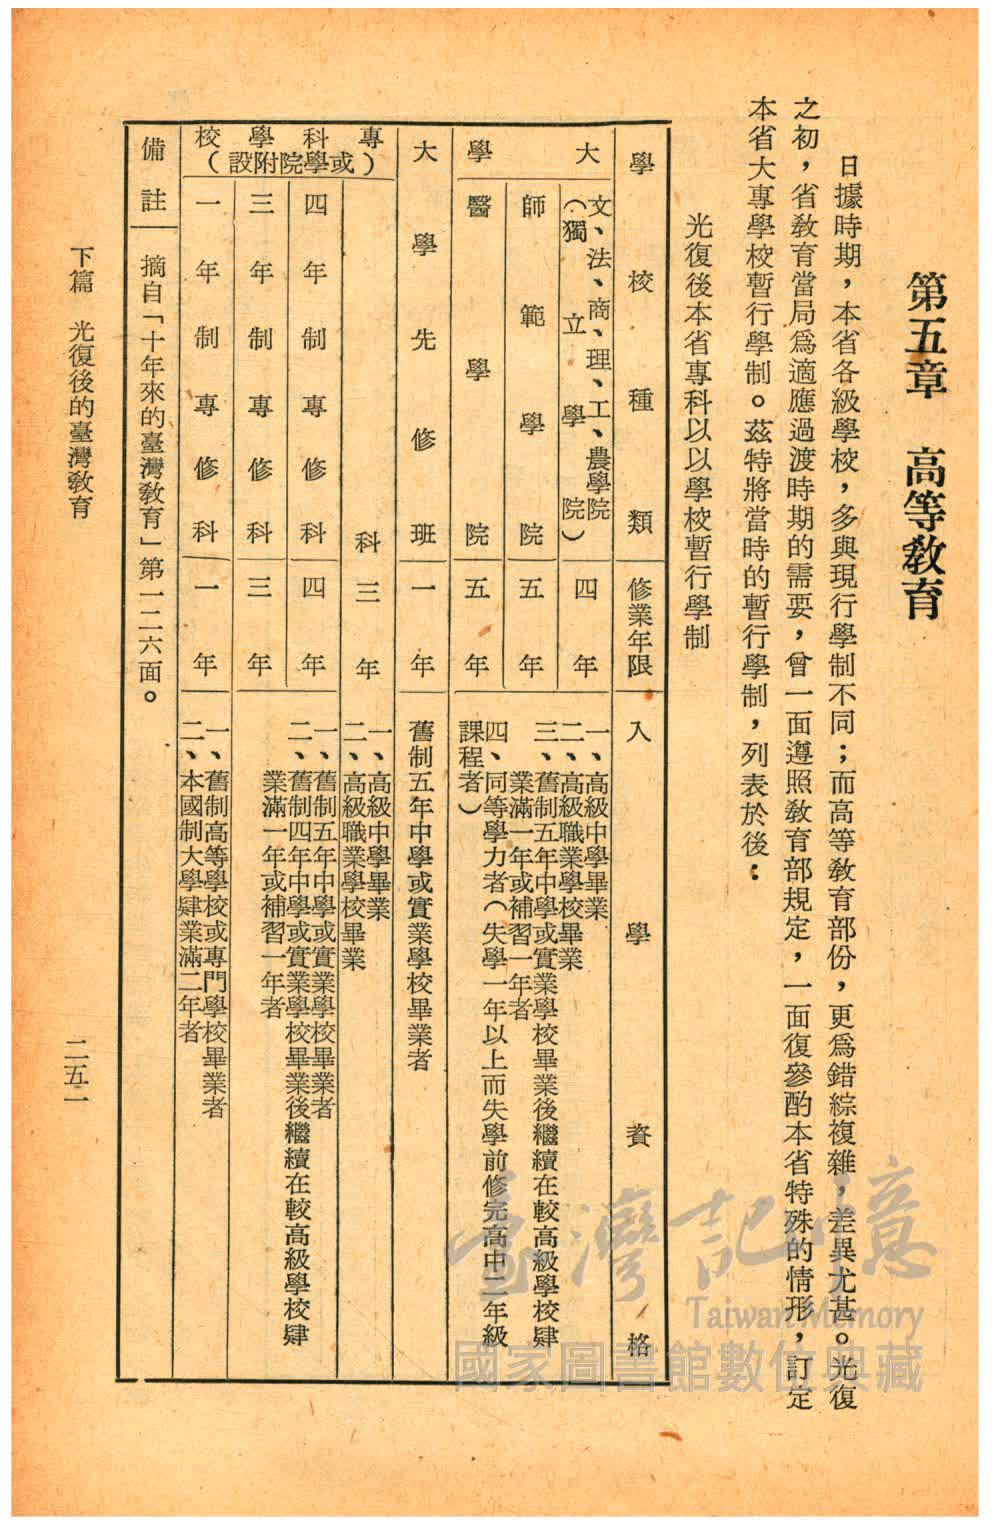 第五章　高等教育
日據時期，本省各級學校，多與現行學制不同；而高等教育部份，更爲錯綜複雜，差異尤甚。光復
之初，省教育當局爲適應過渡時期的需要，曾一面遵照教育部規定，一面復參酌本省特殊的情形，訂定
本省大專學校暫行學制。茲特將當時的暫行學制，列表於後：
光復後本省專科以以學校暫行學制
學校種類
修業年限
入學資格
大學
文、法、商、理、工、農學院
（獨立學院）
四年
師範學院
五年
醫學院
五年
一、高級中學畢業
二、高級職業學校畢業
三、舊制五年中學或實業學校畢業後繼續在較高級學校肄
業滿一年或補習一年者
四、同等學力者（失學一年以上而失學前修完高中二年級
課程者）
大學先修班
一年
舊制五年中學或實業學校畢業者
專科學校
（或學院附設）
科
三年
一、高級中學畢業
二、高級職業學校畢業
四年制專修科
四年
三年制專修科
三年
一、舊制五年中學或實業學校畢業者
二、舊制四年中學或實業學校畢業後繼續在較高級學校肄
業滿一年或補習一年者
一年制專修科
一年
一、舊制高等學校或專門學校畢業者
二、本國制大學肄業滿二年者
備註
摘自「十年來的臺灣教育」第一二六面。
下篇　光復後的臺灣教育
二五一
臺灣記憶
Taiwan Memory
國家圖書館數位典藏